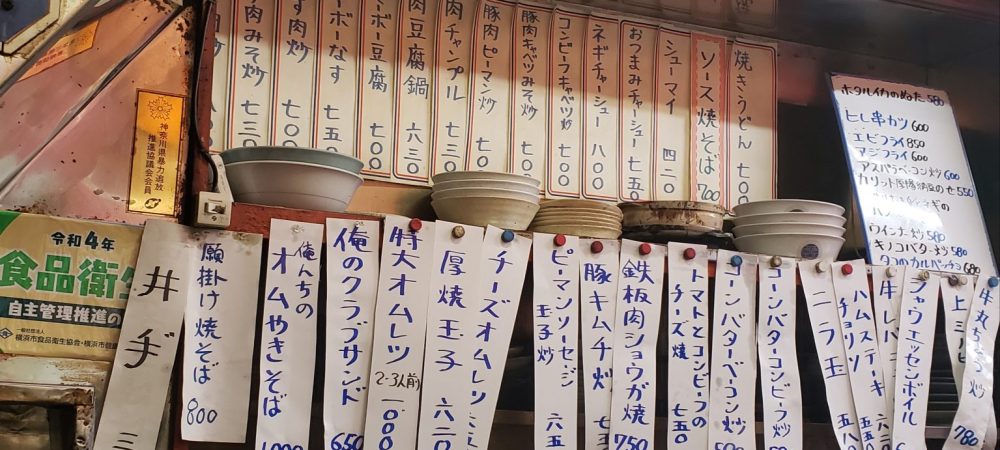 焼きうどん 七〇〇
ソース焼そば 700
シューマイ 四二〇
おつまみチャーシュー 七五〇
ネギチャーシュー 八〇〇
コンビーフキャベツ炒 七〇〇
豚肉キャベツみそ炒 七〇〇
豚肉ピーマン炒 七〇〇
肉チャンプル 七五〇
肉豆腐鍋 六三〇
ーボー豆腐 七〇〇
ーボーなす 七五〇
す肉炒 七〇〇
肉みそ炒 七三〇
ホタルイカのぬた 580
ヒレ串カツ 600
エビフライ 850
アジフライ 600
アスパラベーコン炒 600
550
ウインナ炒 580
キノコバター 580
タコのカルパッチョ 680
神奈川県暴力追放
推進協議会会員
令和4年
食品衛生
自主管理推進の
一般社団法人
横浜市食品衛生協会・横浜市
丼ヂ 三
願掛け焼そば 800
俺んちの
オムやきそば
俺のクラブサンド 650
特大オムレツ 2-3人前 1000
厚焼玉子 六二〇
チーズオムレツ
ピーマンソーセージ
玉子炒 六五
豚キムチ炒 七三
鉄板肉ショウガ焼 750
トマトとコンビーフの
チーズ焼 七五〇
コーンバターベーコン炒
コーンバターコンビーフ炒
ニラ玉 五八〇
ハムステーキ
チョリソ 五五〇
牛レバ 六三
シャウエッセンボイル
上ミノ
牛丸ちょう炒 780